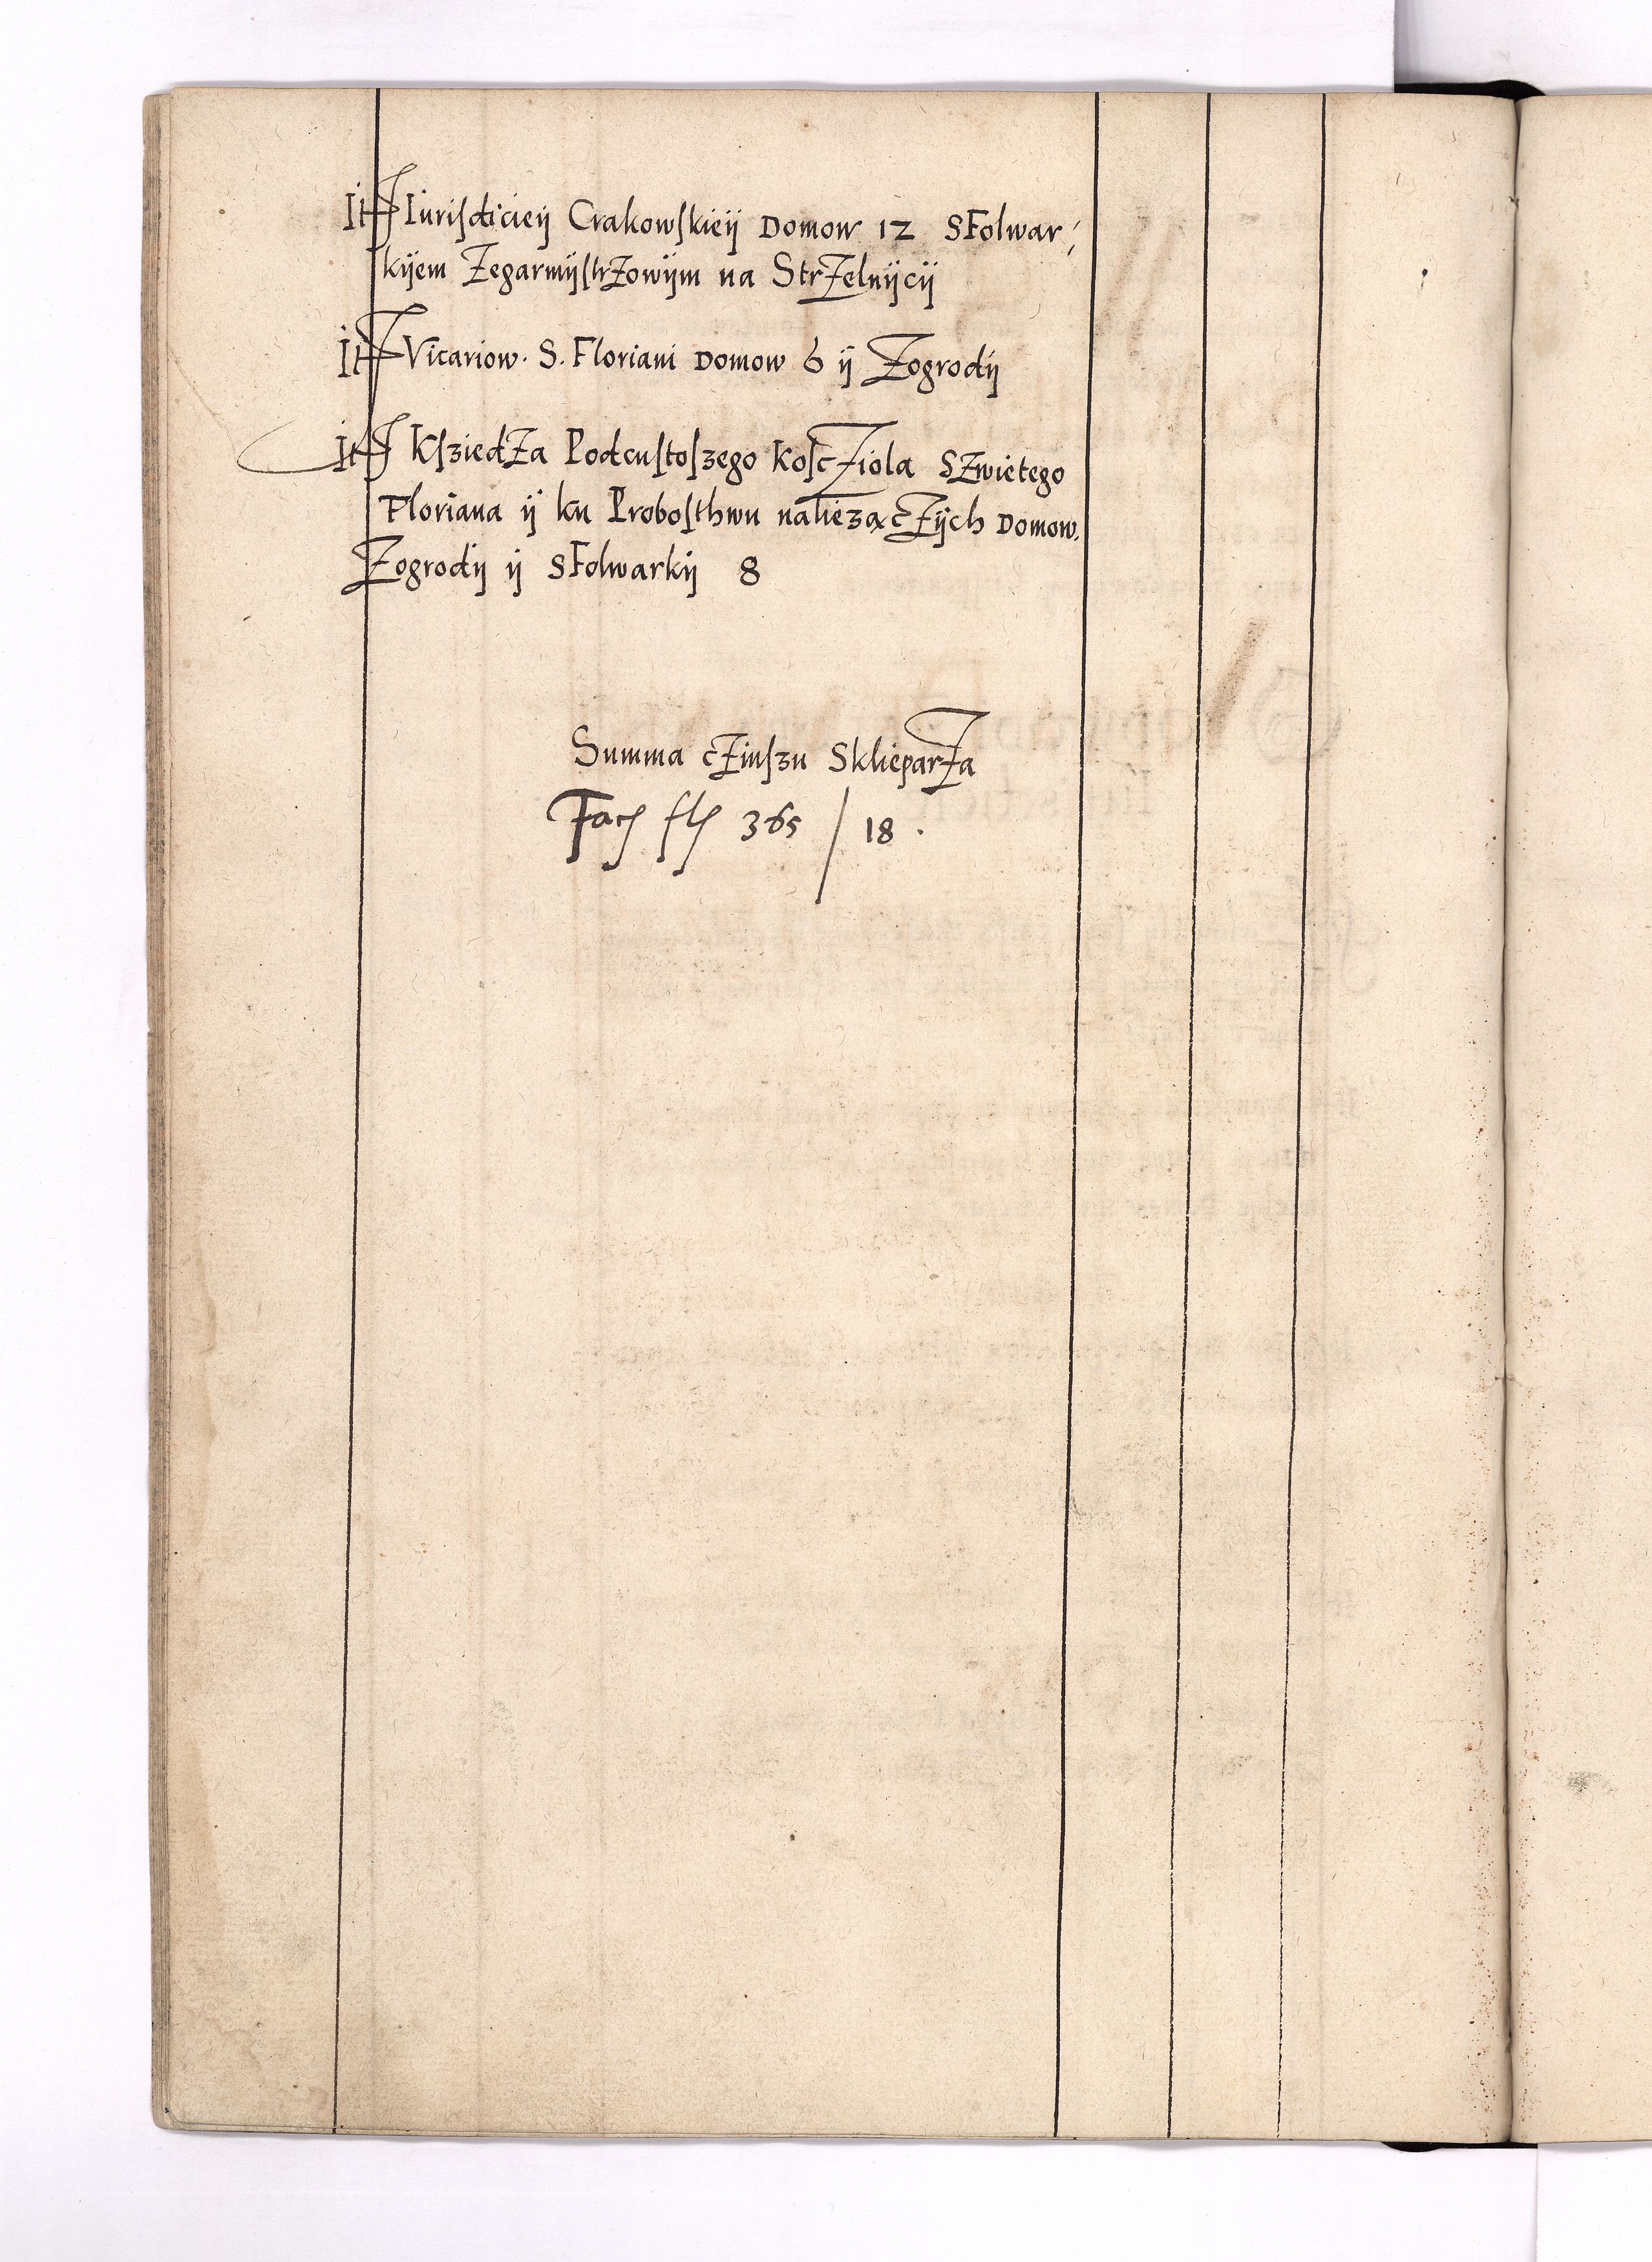 It Iuriſdicieÿ Crakowſkieÿ Domow 12 SFolwar⸗
kÿem Zegarmÿſtrzowÿm na Strzelnÿcÿ
It Vicariow. S. Floriani Domow 6 ÿ Zogrodÿ
It Kſziedza Podcuſtoſzego Koſcziola Szwietego
Floriana ÿ ku Proboſthwu naliezączÿch Domow.
Zogrodÿ ÿ SFolwarkÿ 8
Summa cziuſzu Sklieparza
Fac fl 365 / 18.